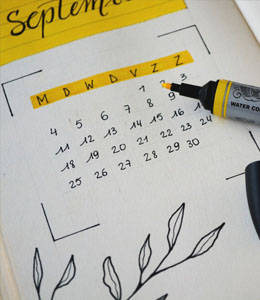 September
M D W D V Z Z
1 2 3
4 5 6 7 8 9
11 12 13 14 15 16
18 19 20 21 22 23 24
25 26 27 28 29 30
WATER CO